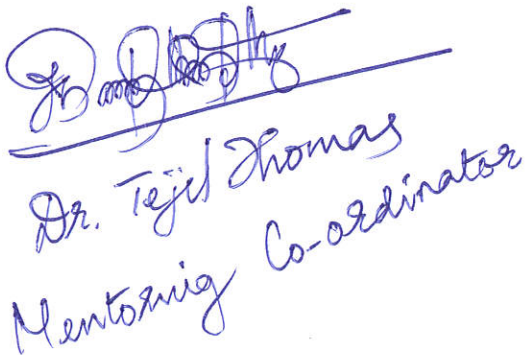 Dr. Tejil Thomas
Mentoring Co-ordinator